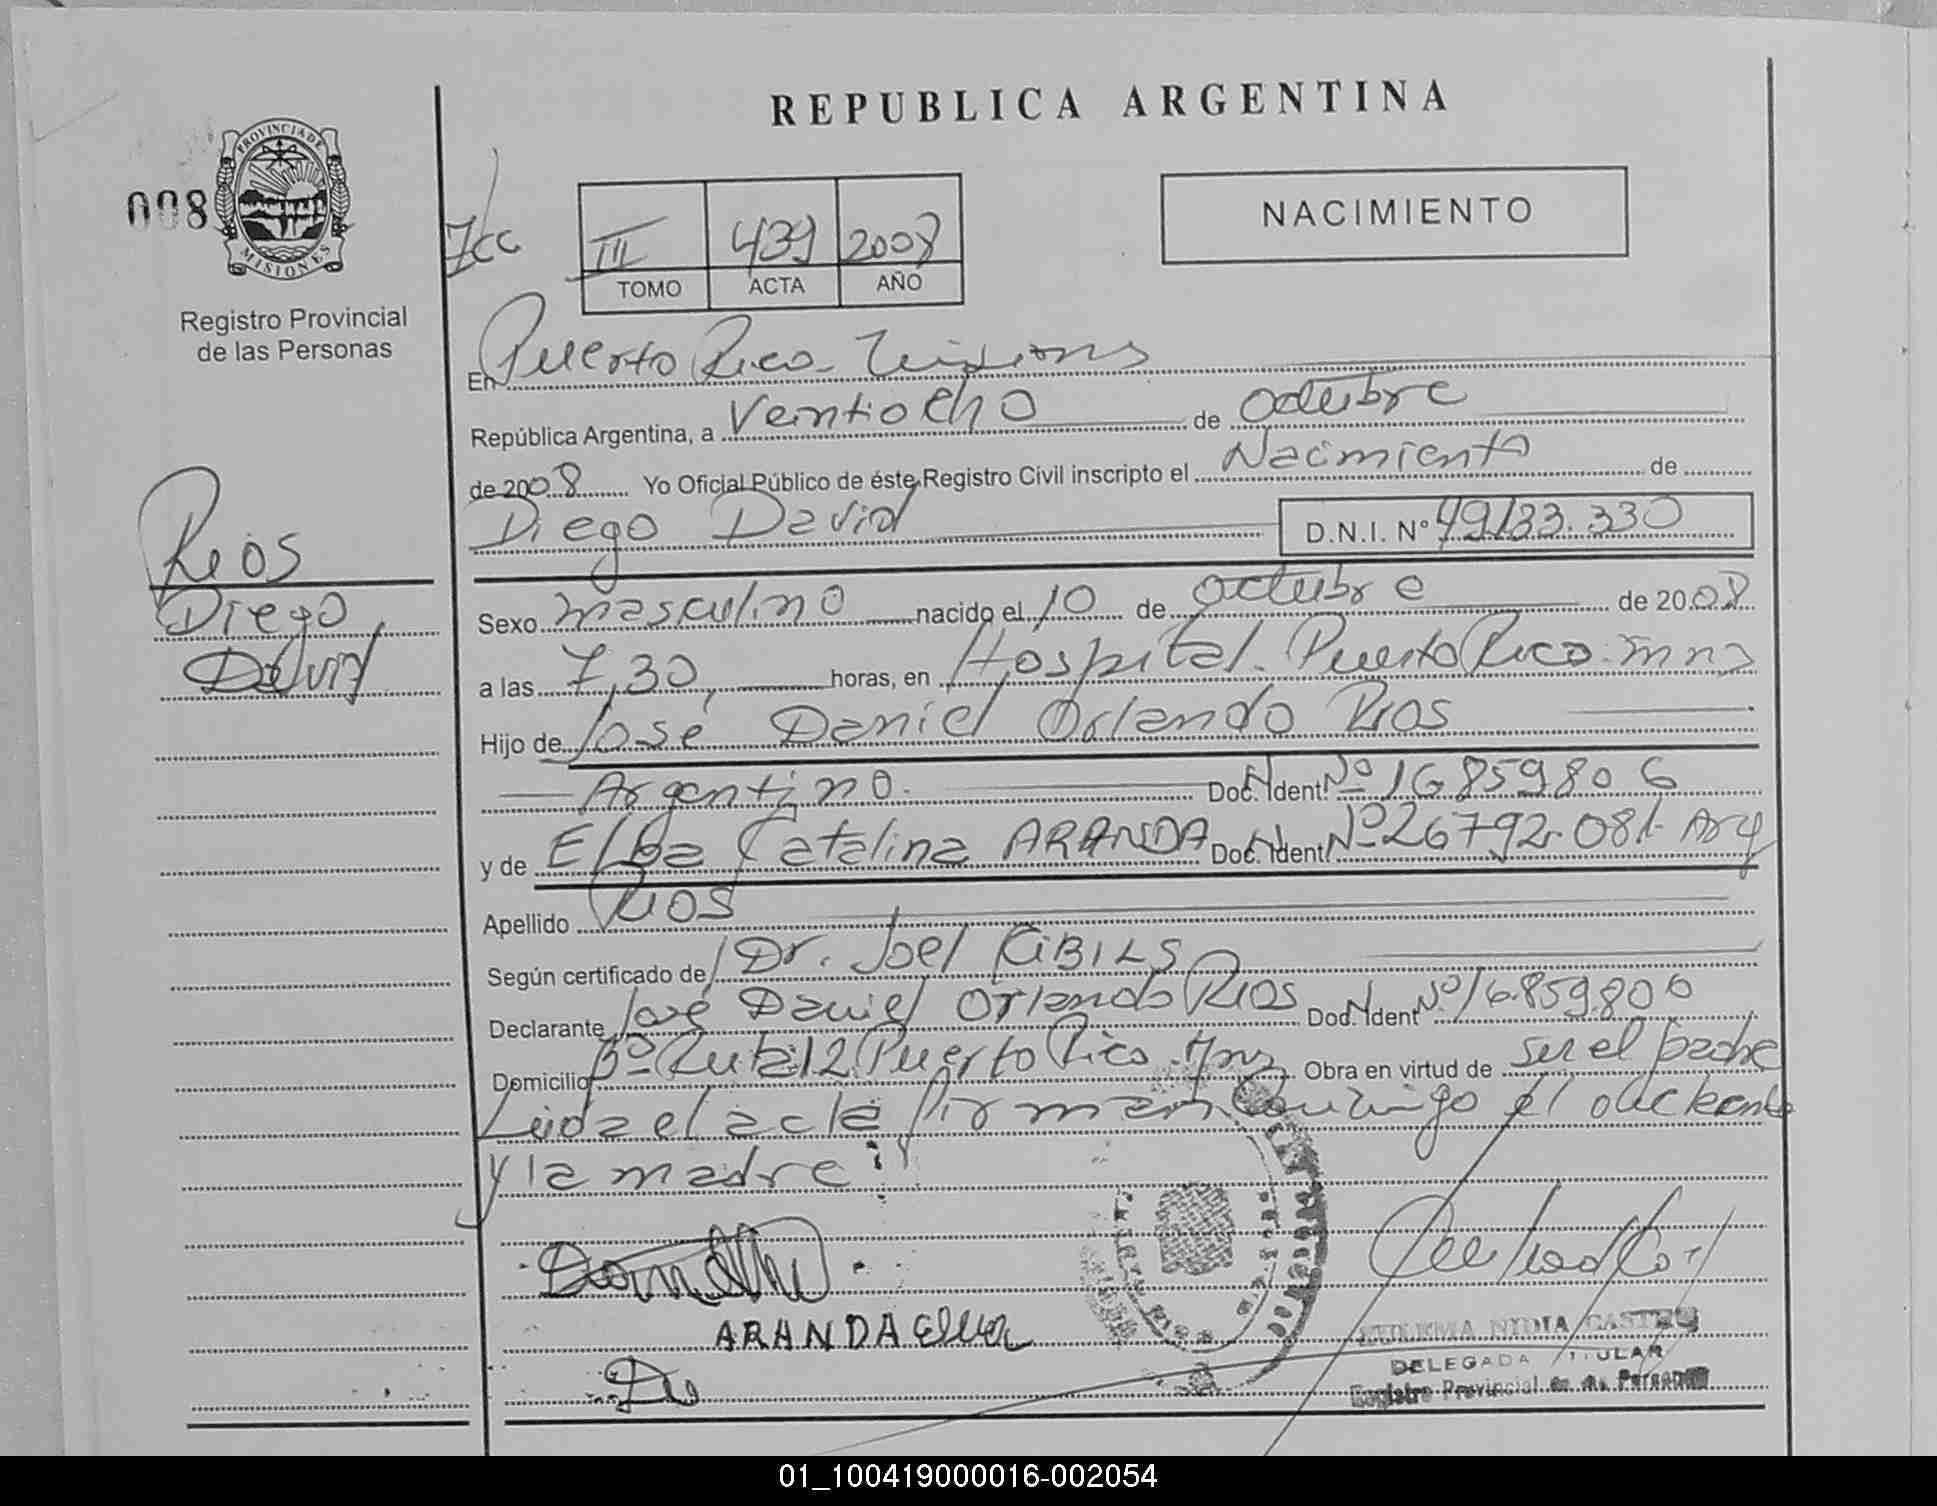 REPUBLICA ARGENTINA
PROVINCIA DE MISIONES
008
Registro Provincial
de las Personas
NACIMIENTO
III 439 2008
TOMO ACTA AÑO
En Puerto Rico - Misiones
República Argentina, a Veintiocho de octubre
de 2008 Yo Oficial Público de éste Registro Civil inscripto el Nacimiento de
Diego David D.N.I. Nº 49133.330
Rios
Diego
David
Sexo masculino nacido el 10 de octubre de 2008
a las 7,30, horas, en Hospital. Puerto Rico. Mnes
Hijo de José Daniel Orlando Rios
Argentino. Doc. Ident. Nº 16859806
y de Elba Catalina ARANDA Doc. Ident. Nº 26792.081- Arg
Apellido Rios
Según certificado de Dr. Joel CIBILS
Declarante José Daniel Orlando Rios Doc. Ident Nº 16.859.806
Domicilio Bº Ruta 12 Puerto Rico. Mns Obra en virtud de ser el padre
Leida el acta firman conmigo el declarante
y la madre
ARANDA
NIDIA CASTRO
DELEGADA TITULAR
Registro Provincial de las Personas
01_100419000016-002054